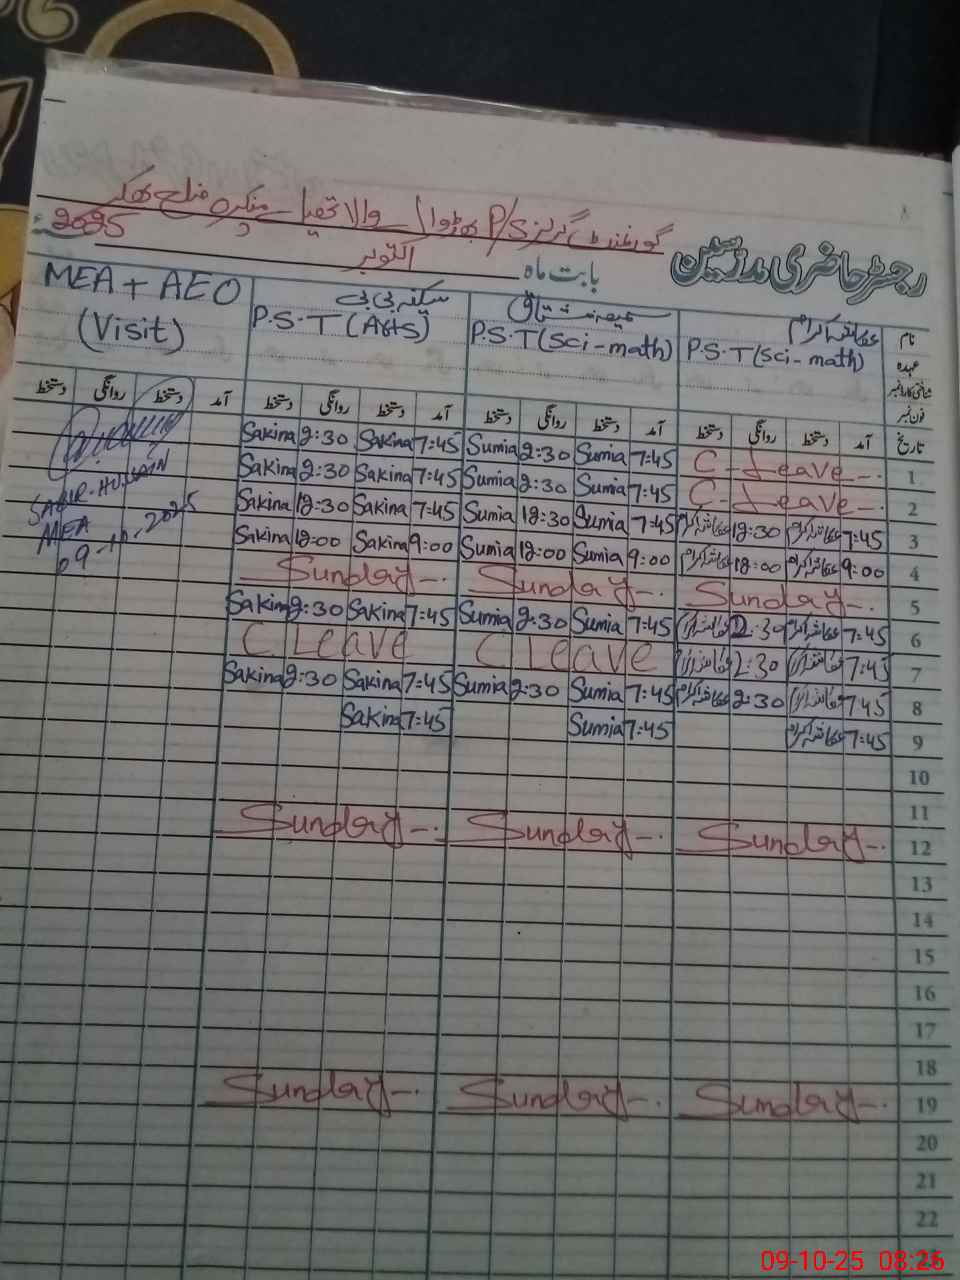 گورنمنٹ گرلز P/S بھڑوال والا تحصیل منکیرہ ضلع بھکر
رجسٹر حاضری مدرسین بابت ماہ اکتوبر 2025ء
نام سمیعہ مشتاق سکینہ بی بی MEA + AEO
عہدہ P.S.T (Sci-math) P.S.T (Sci-math) P.S.T (Arts) (Visit)
شناختی کارڈ نمبر
فون نمبر
تاریخ آمد دستخط روانگی دستخط آمد دستخط روانگی دستخط آمد دستخط روانگی دستخط آمد دستخط روانگی دستخط
1 C-Leave 7:45 Sumia 2:30 Sumia 7:45 Sakina 2:30 Sakina
2 C-Leave 7:45 Sumia 2:30 Sumia 7:45 Sakina 2:30 Sakina
3 7:45 12:30 7:45 Sumia 12:30 Sumia 7:45 Sakina 12:30 Sakina
4 9:00 12:00 9:00 Sumia 12:00 Sumia 9:00 Sakina 12:00 Sakina
5 Sunday Sunday Sunday
6 7:45 2:30 7:45 Sumia 2:30 Sumia 7:45 Sakina 2:30 Sakina
7 7:45 2:30 C Leave C Leave
8 7:45 2:30 7:45 Sumia 2:30 Sumia 7:45 Sakina 2:30 Sakina
9 7:45 7:45 Sumia 7:45 Sakina
SABIR HUSSAIN
MEA
09-10-2025
10
11
12 Sunday Sunday Sunday
13
14
15
16
17
18
19 Sunday Sunday Sunday
20
21
22
09-10-25 08:26